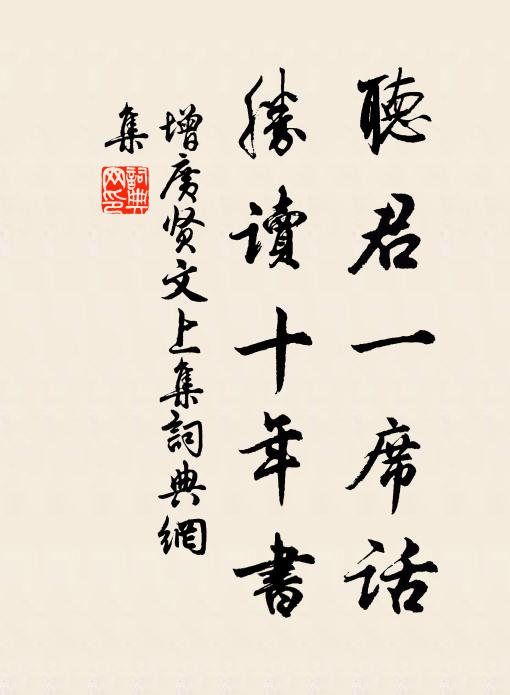 聽君一席话
勝读十年書
增廣贤文上集詞典網
集
詞典
网印